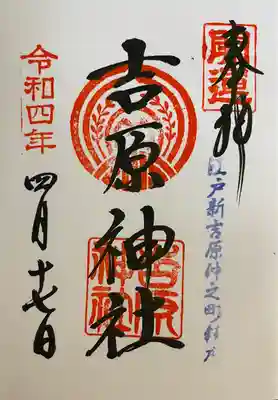 奉拝
開運
江戸新吉原仲之町松戸
吉原神社
吉原
神社
令和四年
四月十七日